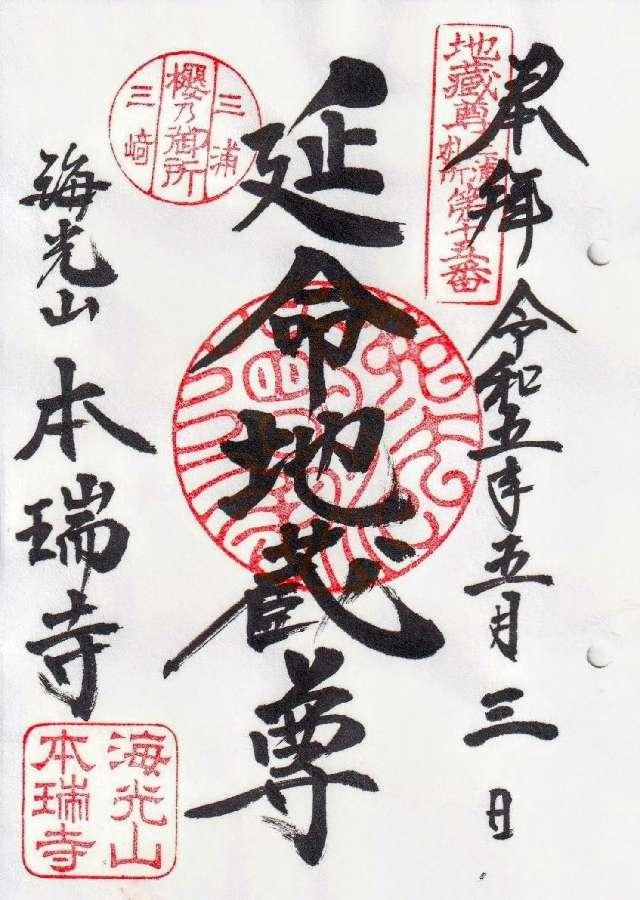 奉拜
令和五年五月三日
地蔵尊
三浦
札所
第十五番
延命地蔵尊
三浦
櫻乃御所
三崎
海光山
本瑞寺
海光山
本瑞寺